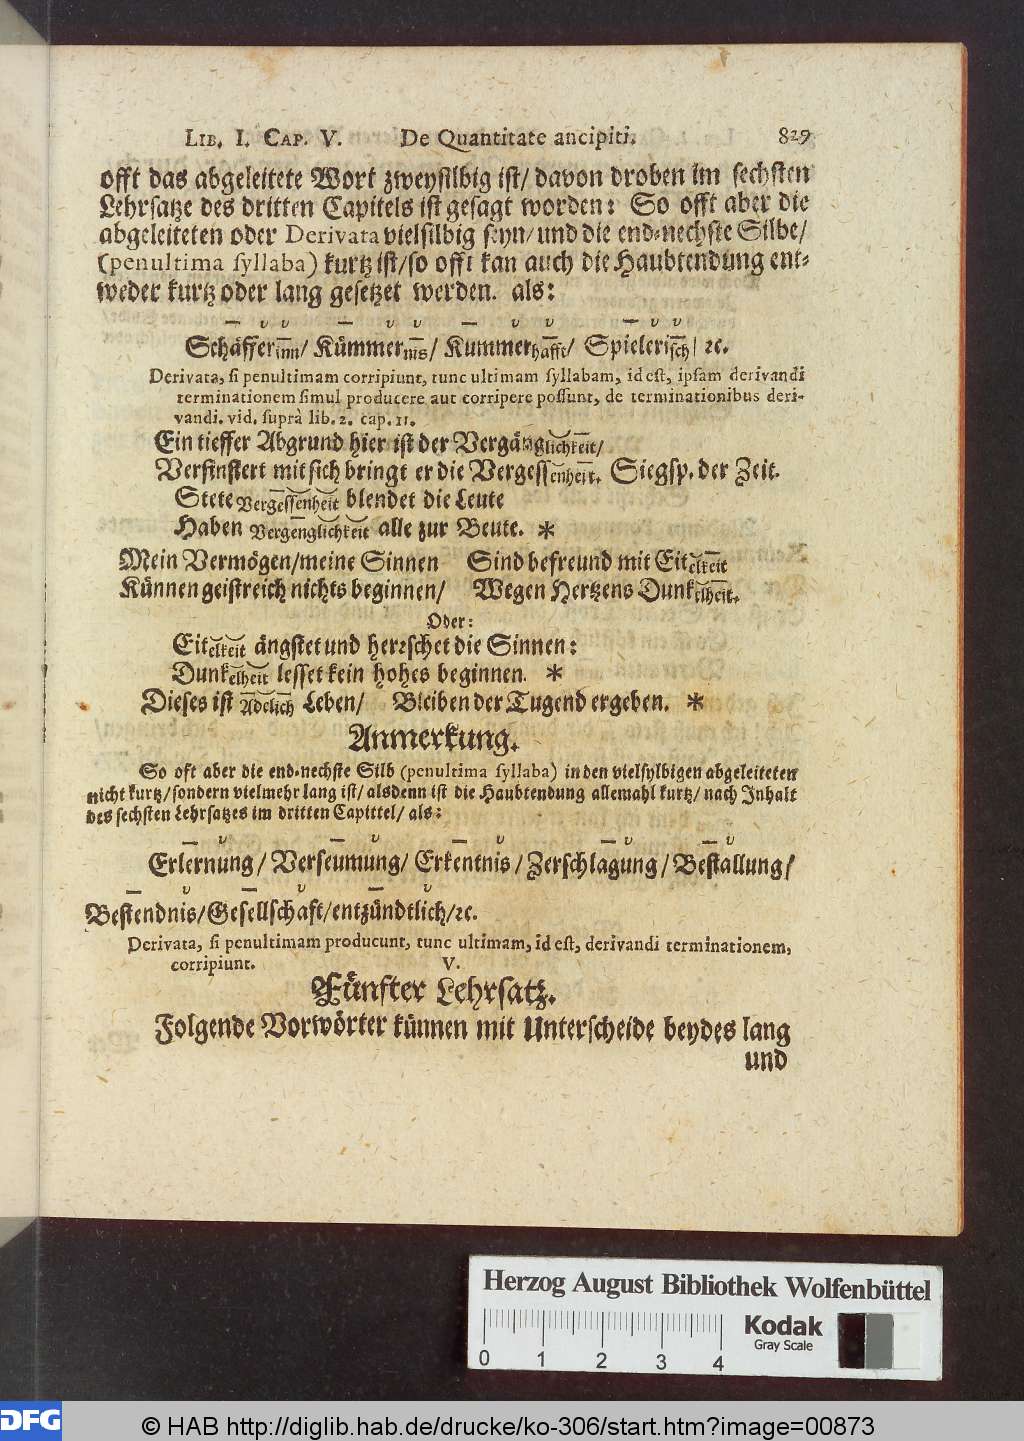 LIB. I. CAP. V. De Quantitate ancipiti. 829
offt das abgeleitete Wort zweysilbig ist/ davon droben im sechsten
Lehrsatze des dritten Capitels ist gesagt worden: So offt aber die
abgeleiteten oder Derivata vielsilbig seyn/ und die end-nechste Silbe/
(penultima syllaba) kurtz ist/ so offt kan auch die Haubtendung ent-
weder kurtz oder lang gesetzet werden. als:
— υ υ — υ υ — υ υ — υ υ
Schäfferinn/ Kümmernis/ Kummerhafft/ Spielerisch/ ꝛc.
Derivata, si penultimam corripiunt, tunc ultimam syllabam, id est, ipsam derivandi
terminationem simul producere aut corripere possunt, de terminationibus deri-
vandi. vid. suprà lib. 2. cap. 11.
Ein tieffer Abgrund hier ist der Vergänglichkeit/
Verfinstert mit sich bringt er die Vergessenheit. Siegsp. der Zeit.
Stete Vergessenheit blendet die Leute
Haben Vergenglichkeit alle zur Beute. *
Mein Vermögen/ meine Sinnen Sind befreund mit Eitelkeit
Künnen geistreich nichts beginnen/ Wegen Hertzens Dunkelheit.
Oder:
Eitelkeit ängstet und herrschet die Sinnen:
Dunkelheit lesset kein hohes beginnen. *
Dieses ist Adelich Leben/ Bleiben der Tugend ergeben. *
Anmerkung.
So oft aber die end-nechste Silb (penultima syllaba) in den vielsylbigen abgeleiteten
nicht kurtz/ sondern vielmehr lang ist/ alsdenn ist die Haubtendung allemahl kurtz/ nach Inhalt
des sechsten Lehrsatzes im dritten Capittel/ als:
— υ — υ — υ — υ — υ
Erlernung/ Verseumung/ Erkentnis/ Zerschlagung/ Bestallung/
— υ — υ — υ
Bestendnis/ Gesellschaft/ entzündtlich/ ꝛc.
Derivata, si penultimam producunt, tunc ultimam, id est, derivandi terminationem,
corripiunt. V.
Fünfter Lehrsatz.
Folgende Vorwörter künnen mit Unterscheide beydes lang
und
Herzog August Bibliothek Wolfenbüttel
0 1 2 3 4
Kodak
Gray Scale
DFG © HAB http://diglib.hab.de/drucke/ko-306/start.htm?image=00873